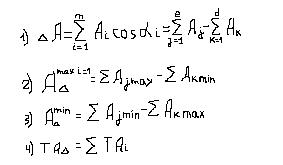 1) ΔA = Σ_{i=1}^{m} A_i cos α_i = Σ_{j=1}^{e} A_j - Σ_{k=1}^{d} A_k
2) A_Δ^{max i=1} = Σ A_{j max} - Σ A_{k min}
3) A_Δ^{min} = Σ A_{j min} - Σ A_{k max}
4) TA_Δ = Σ TA_i